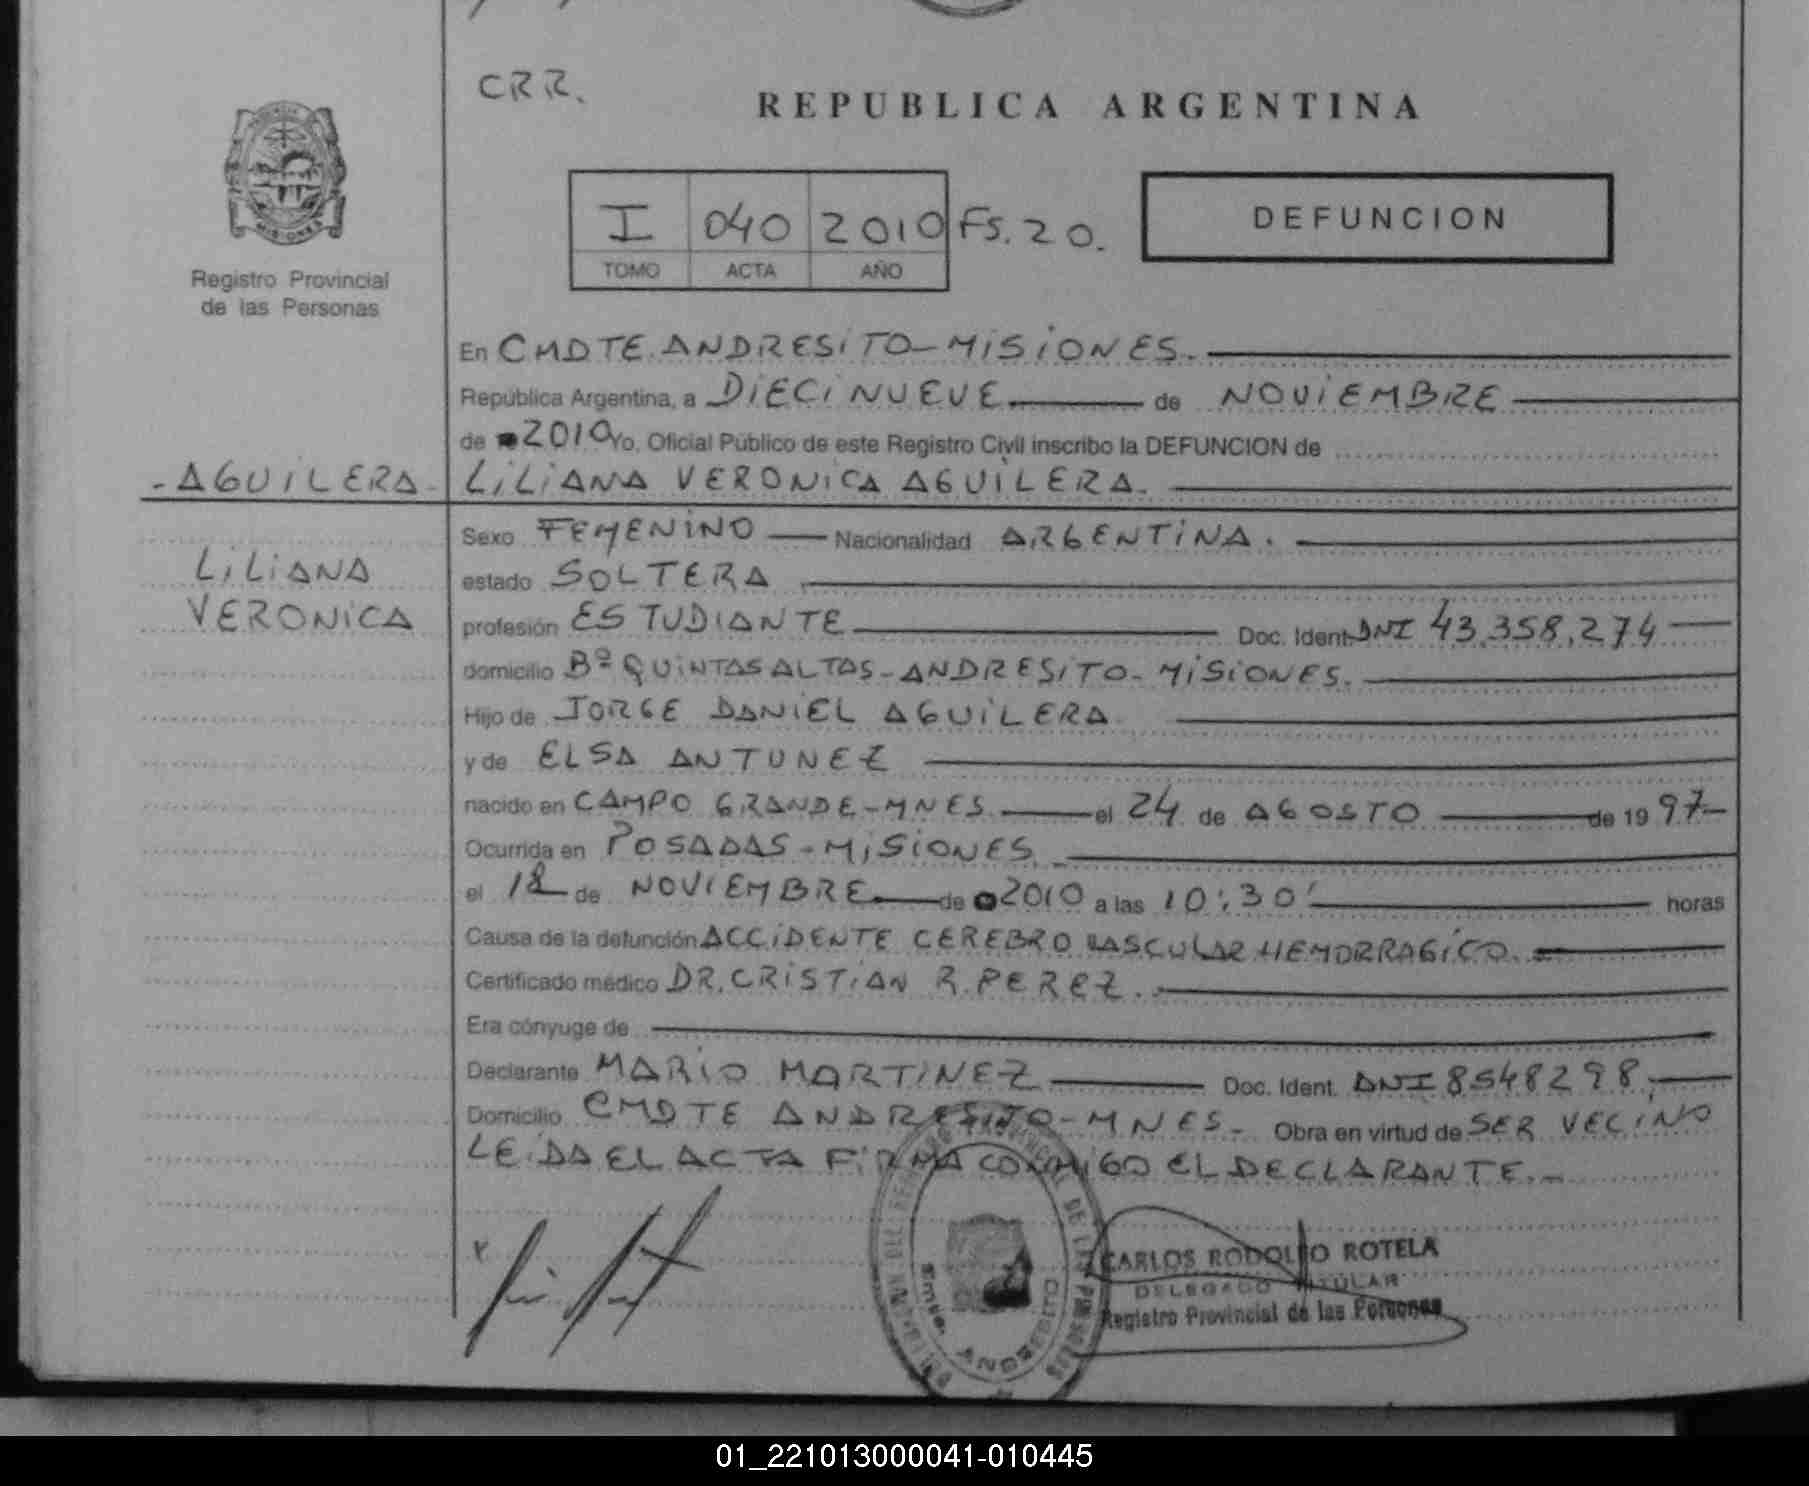 CRR.
REPUBLICA ARGENTINA
MISIONES
Registro Provincial
de las Personas
I 040 2010 FS. 20.
TOMO ACTA AÑO
DEFUNCION
En CMDTE. ANDRESITO-MISIONES.
República Argentina, a DIECINUEVE de NOVIEMBRE
de 2010 Yo, Oficial Público de este Registro Civil inscribo la DEFUNCION de
-AGUILERA- LILIANA VERONICA AGUILERA.
LILIANA
VERONICA
Sexo FEMENINO Nacionalidad ARGENTINA.
estado SOLTERA
profesión ESTUDIANTE Doc. Ident. DNI 43.358.274
domicilio Bº QUINTAS ALTAS-ANDRESITO-MISIONES.
Hijo de JORGE DANIEL AGUILERA
y de ELSA ANTUNEZ
nacido en CAMPO GRANDE-MNES. el 24 de AGOSTO de 1997-
Ocurrida en POSADAS-MISIONES.
el 18 de NOVIEMBRE de 2010 a las 10:30' horas
Causa de la defunción ACCIDENTE CEREBRO VASCULAR HEMORRAGICO.
Certificado médico DR. CRISTIAN R. PEREZ.
Era cónyuge de
Declarante MARIO MARTINEZ Doc. Ident. DNI 8548298,
Domicilio CMDTE ANDRESITO-MNES- Obra en virtud de SER VECINO
LEIDA EL ACTA FIRMA CONMIGO EL DECLARANTE.-
CARLOS RODOLFO ROTELA
DELEGADO TITULAR
Registro Provincial de las Personas
01_221013000041-010445